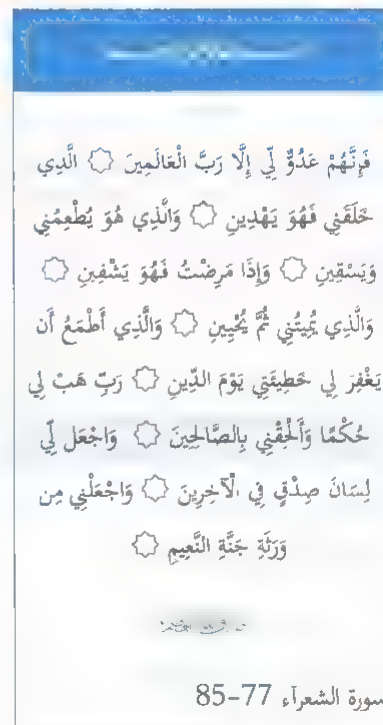 فَإِنَّهُمْ عَدُوٌّ لِّي إِلَّا رَبَّ الْعَالَمِينَ ۝ الَّذِي
خَلَقَنِي فَهُوَ يَهْدِينِ ۝ وَالَّذِي هُوَ يُطْعِمُنِي
وَيَسْقِينِ ۝ وَإِذَا مَرِضْتُ فَهُوَ يَشْفِينِ ۝
وَالَّذِي يُمِيتُنِي ثُمَّ يُحْيِينِ ۝ وَالَّذِي أَطْمَعُ أَن
يَغْفِرَ لِي خَطِيئَتِي يَوْمَ الدِّينِ ۝ رَبِّ هَبْ لِي
حُكْمًا وَأَلْحِقْنِي بِالصَّالِحِينَ ۝ وَاجْعَل لِّي
لِسَانَ صِدْقٍ فِي الْآخِرِينَ ۝ وَاجْعَلْنِي مِن
وَرَثَةِ جَنَّةِ النَّعِيمِ ۝
سورة الشعرآء 77-85